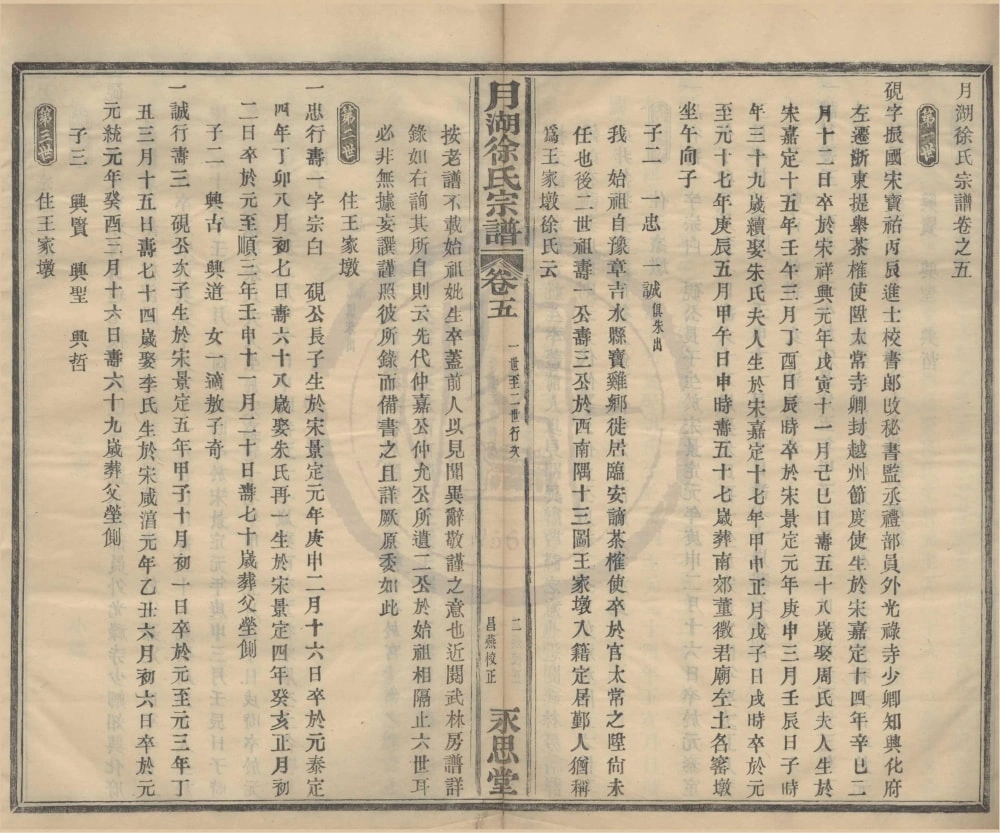 月湖徐氏宗譜卷之五
第一世
硯字振國宋寶祐丙辰進士校書郎改秘書監丞禮部員外光祿寺少卿知興化府
左遷浙東提舉茶榷使陞太常寺卿封越州節度使生於宋嘉定十四年辛巳二
月十二日卒於宋祥興元年戊寅十一月己巳日壽五十八歲娶周氏夫人生於
宋嘉定十五年壬午三月丁酉日辰時卒於宋景定元年庚申三月壬辰日子時
年三十九歲續娶朱氏夫人生於宋嘉定十七年甲申正月戊子日戌時卒於元
至元十七年庚辰五月甲午日申時壽五十七歲葬南郊董徵君廟左土名窰墩
坐午向子
子二　一忠　一誠俱朱出
我　始祖自豫章吉水縣寶雞鄉徙居臨安謫茶榷使卒於官太常之陞尙未
任也後二世祖壽一公壽三公於西南隅十三圖王家墩入籍定居鄞人猶稱
爲王家墩徐氏云
月湖徐氏宗譜　卷五　一世至二世行次　二　昌燕校正　永思堂
按老譜不載始祖妣生卒蓋前人以見聞異辭敬謹之意也近閱武林房譜詳
錄如右詢其所自則云先代仲嘉公仲尤公所遺二公於始祖相隔止六世耳
必非無據妄譔謹照彼所錄而備書之且詳厥原委如此
第二世　住王家墩
一忠行壽一字宗白　硯公長子生於宋景定元年庚申二月十六日卒於元泰定
四年丁卯八月初七日壽六十八歲娶朱氏再一生於宋景定四年癸亥正月初
二日卒於元至順三年壬申十一月二十日壽七十歲葬父塋側
子二　興古　興道　女一適敖子奇
一誠行壽三　硯公次子生於宋景定五年甲子十月初十日卒於元至元三年丁
丑三月十五日壽七十四歲娶李氏生於宋咸淳元年乙丑六月初六日卒於元
元統元年癸酉三月十六日壽六十九歲葬父塋側
子三　興賢　興聖　興哲
第三世　住王家墩